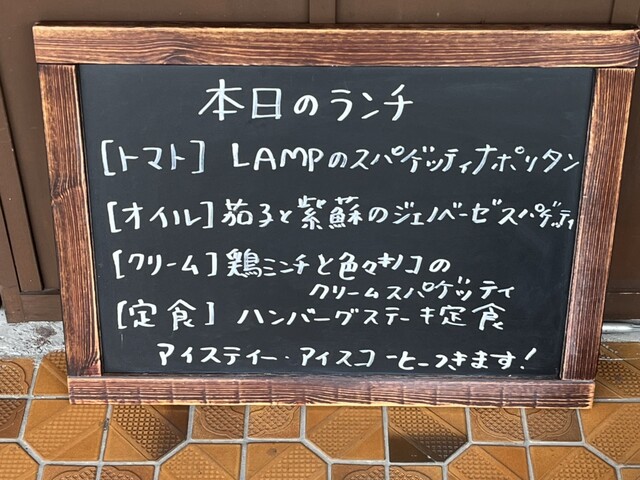 本日のランチ
[トマト] LAMPのスパゲッティナポリタン
[オイル]茄子と紫蘇のジェノベーゼスパゲッティ
[クリーム]鶏ミンチと色々キノコの
クリームスパゲッティ
[定食] ハンバーグステーキ定食
アイスティー・アイスコーヒーつきます!